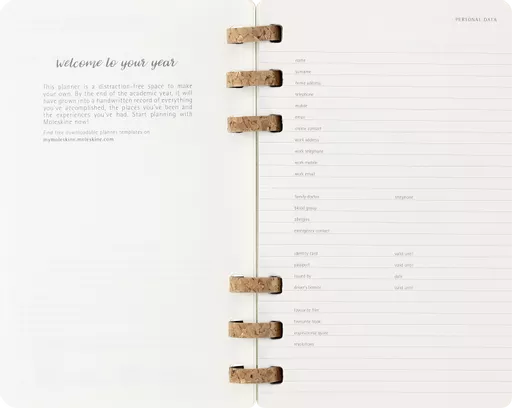 welcome to your year
This planner is a distraction-free space to make
your own. By the end of the academic year, it will
have grown into a handwritten record of everything
you've accomplished, the places you've been and
the experiences you've had. Start planning with
Moleskine now!
Find the downloadable planner templates on
mymoleskine.moleskine.com
PERSONAL DATA
name
surname
home address
telephone
mobile
email
work address
work telephone
work mobile
work email
family doctor telephone
blood group
allergies
emergency contact
identity card valid until
passport valid until
issued by date
driver's licence valid until
favourite book